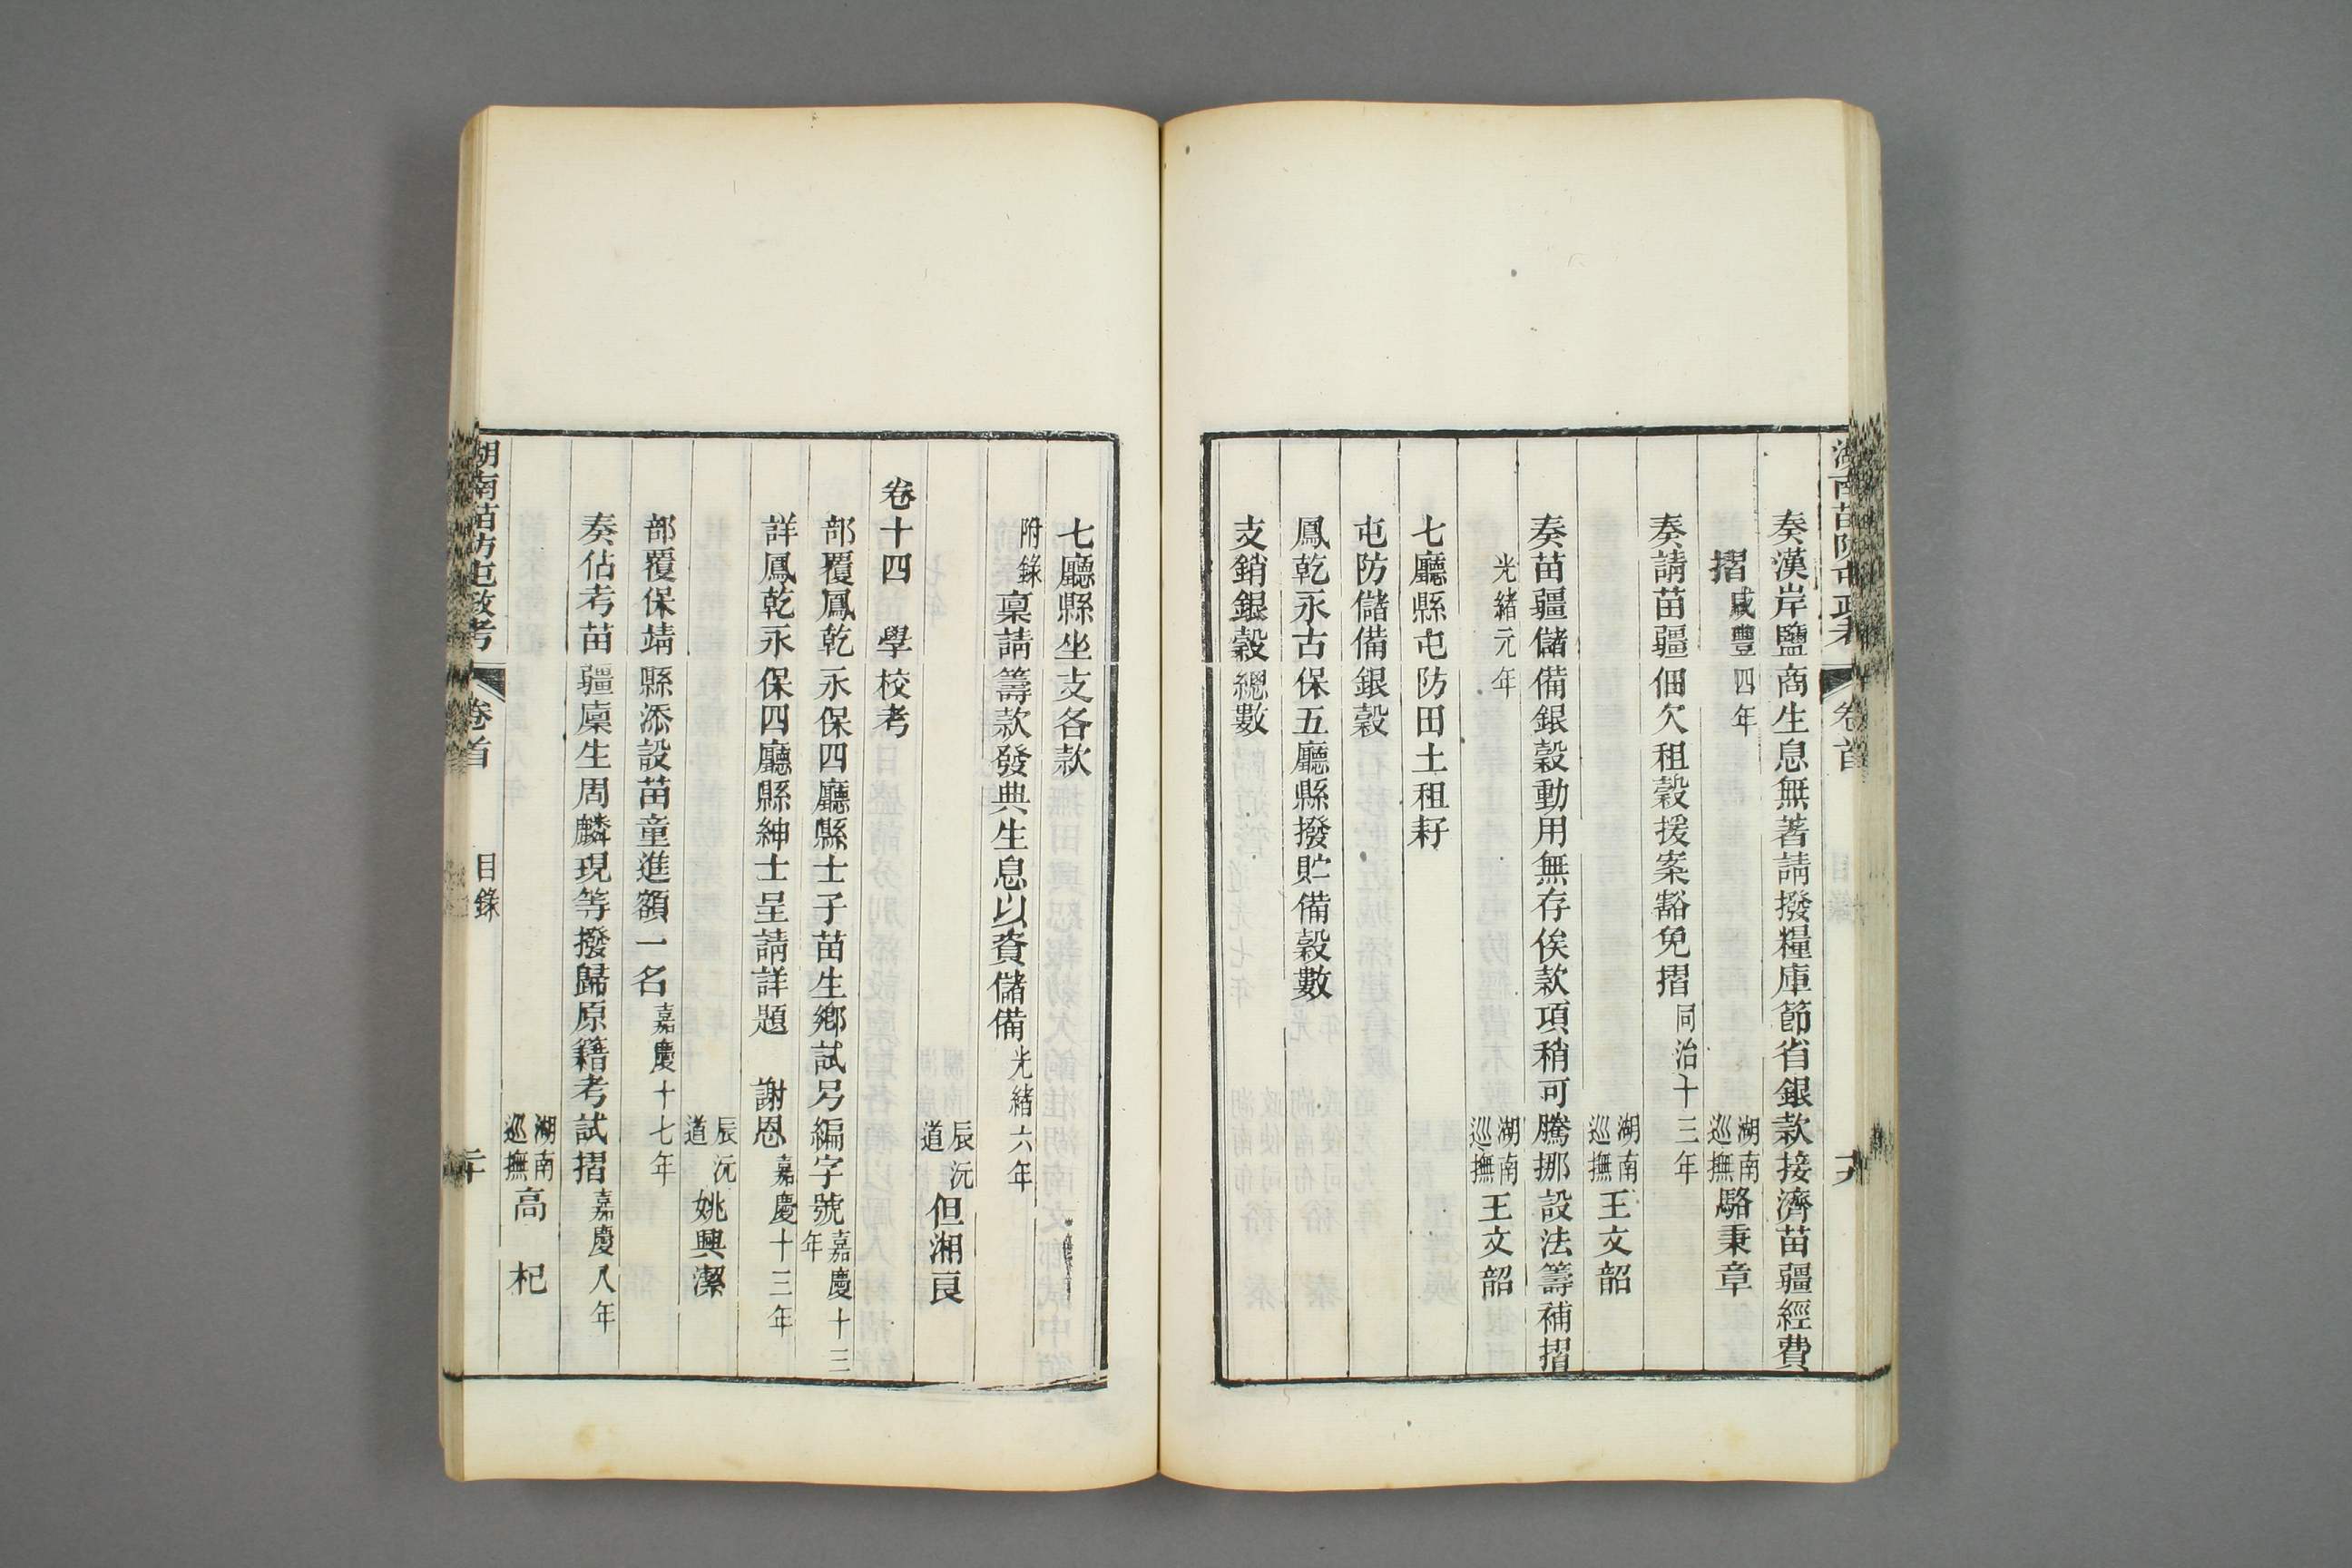 奏漢岸鹽商生息無著請撥糧庫節省銀款接濟苗疆經費
摺咸豐四年 湖南巡撫駱秉章
奏請苗疆佃欠租穀援案豁免摺同治十三年
湖南巡撫王文韶
奏苗疆儲備銀穀動用無存俟款項稍可騰挪設法籌補摺
光緒元年 湖南巡撫王文韶
七廳縣屯防田土租籽
屯防儲備銀穀
鳳乾永古保五廳縣撥貯備穀數
支銷銀穀總數
七廳縣坐支各款
附錄稟請籌款發典生息以資儲備光緒六年
辰沅道但湘良
卷十四 學校考
部覆鳳乾永保四廳縣士子苗生鄉試另編字號嘉慶十三年
詳鳳乾永保四廳縣紳士呈請詳題 謝恩嘉慶十三年
辰沅道姚興潔
部覆保靖縣添設苗童進額一名嘉慶十七年
奏佔考苗疆廩生周麟現等撥歸原籍考試摺嘉慶八年
湖南巡撫高 杞
湖南苗防屯政考 卷首 目錄